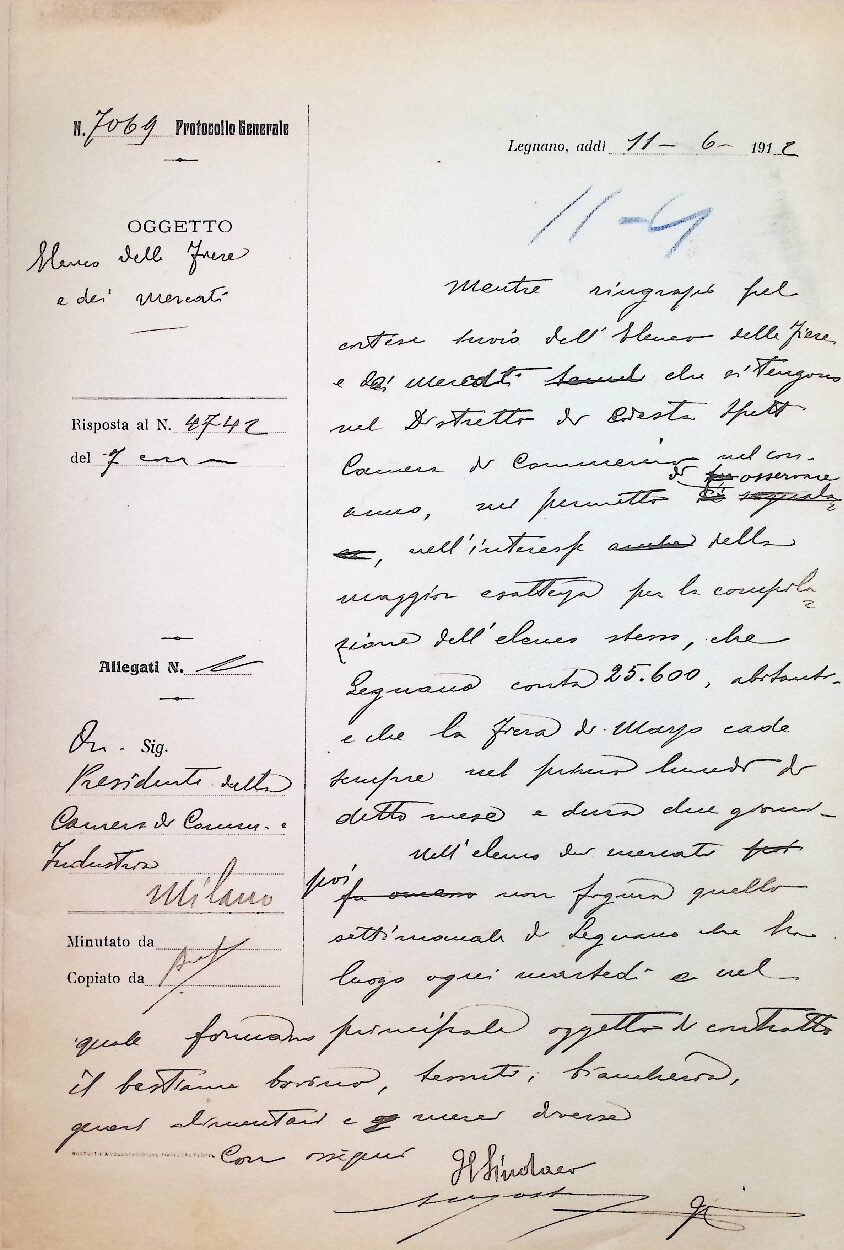 N. 7069 Protocollo Generale
Legnano, addì 11 - 6 - 1912
11-4
OGGETTO
Elenco delle Fiere
e dei mercati
Risposta al N. 4742
del 7 corr
Allegati N.
On. Sig.
Presidente della
Camera di Comm. e
Industria
Milano
Minutato da
Copiato da
Mentre ringrazio pel
cortese invio dell'Elenco delle Fiere
e dei mercati che si tengono
nel Distretto di Codesta Spett
Camera di Commercio nel corr.
anno, mi permetto di osservare
, nell'interesse anche della
maggior esattezza per la compila
zione dell'elenco stesso, che
Legnano conta 25.600, abitanti
e che la Fiera di Marzo cade
sempre nel primo lunedì di
detto mese e dura due giorni
Nell'elenco dei mercati poi
poi non figura quello
settimanale di Legnano che ha
luogo ogni martedì e nel
quale formano principale oggetto di contratto
il bestiame bovino, tessuti, biancheria,
generi alimentari e merci diverse
Con ossequi
Il Sindaco